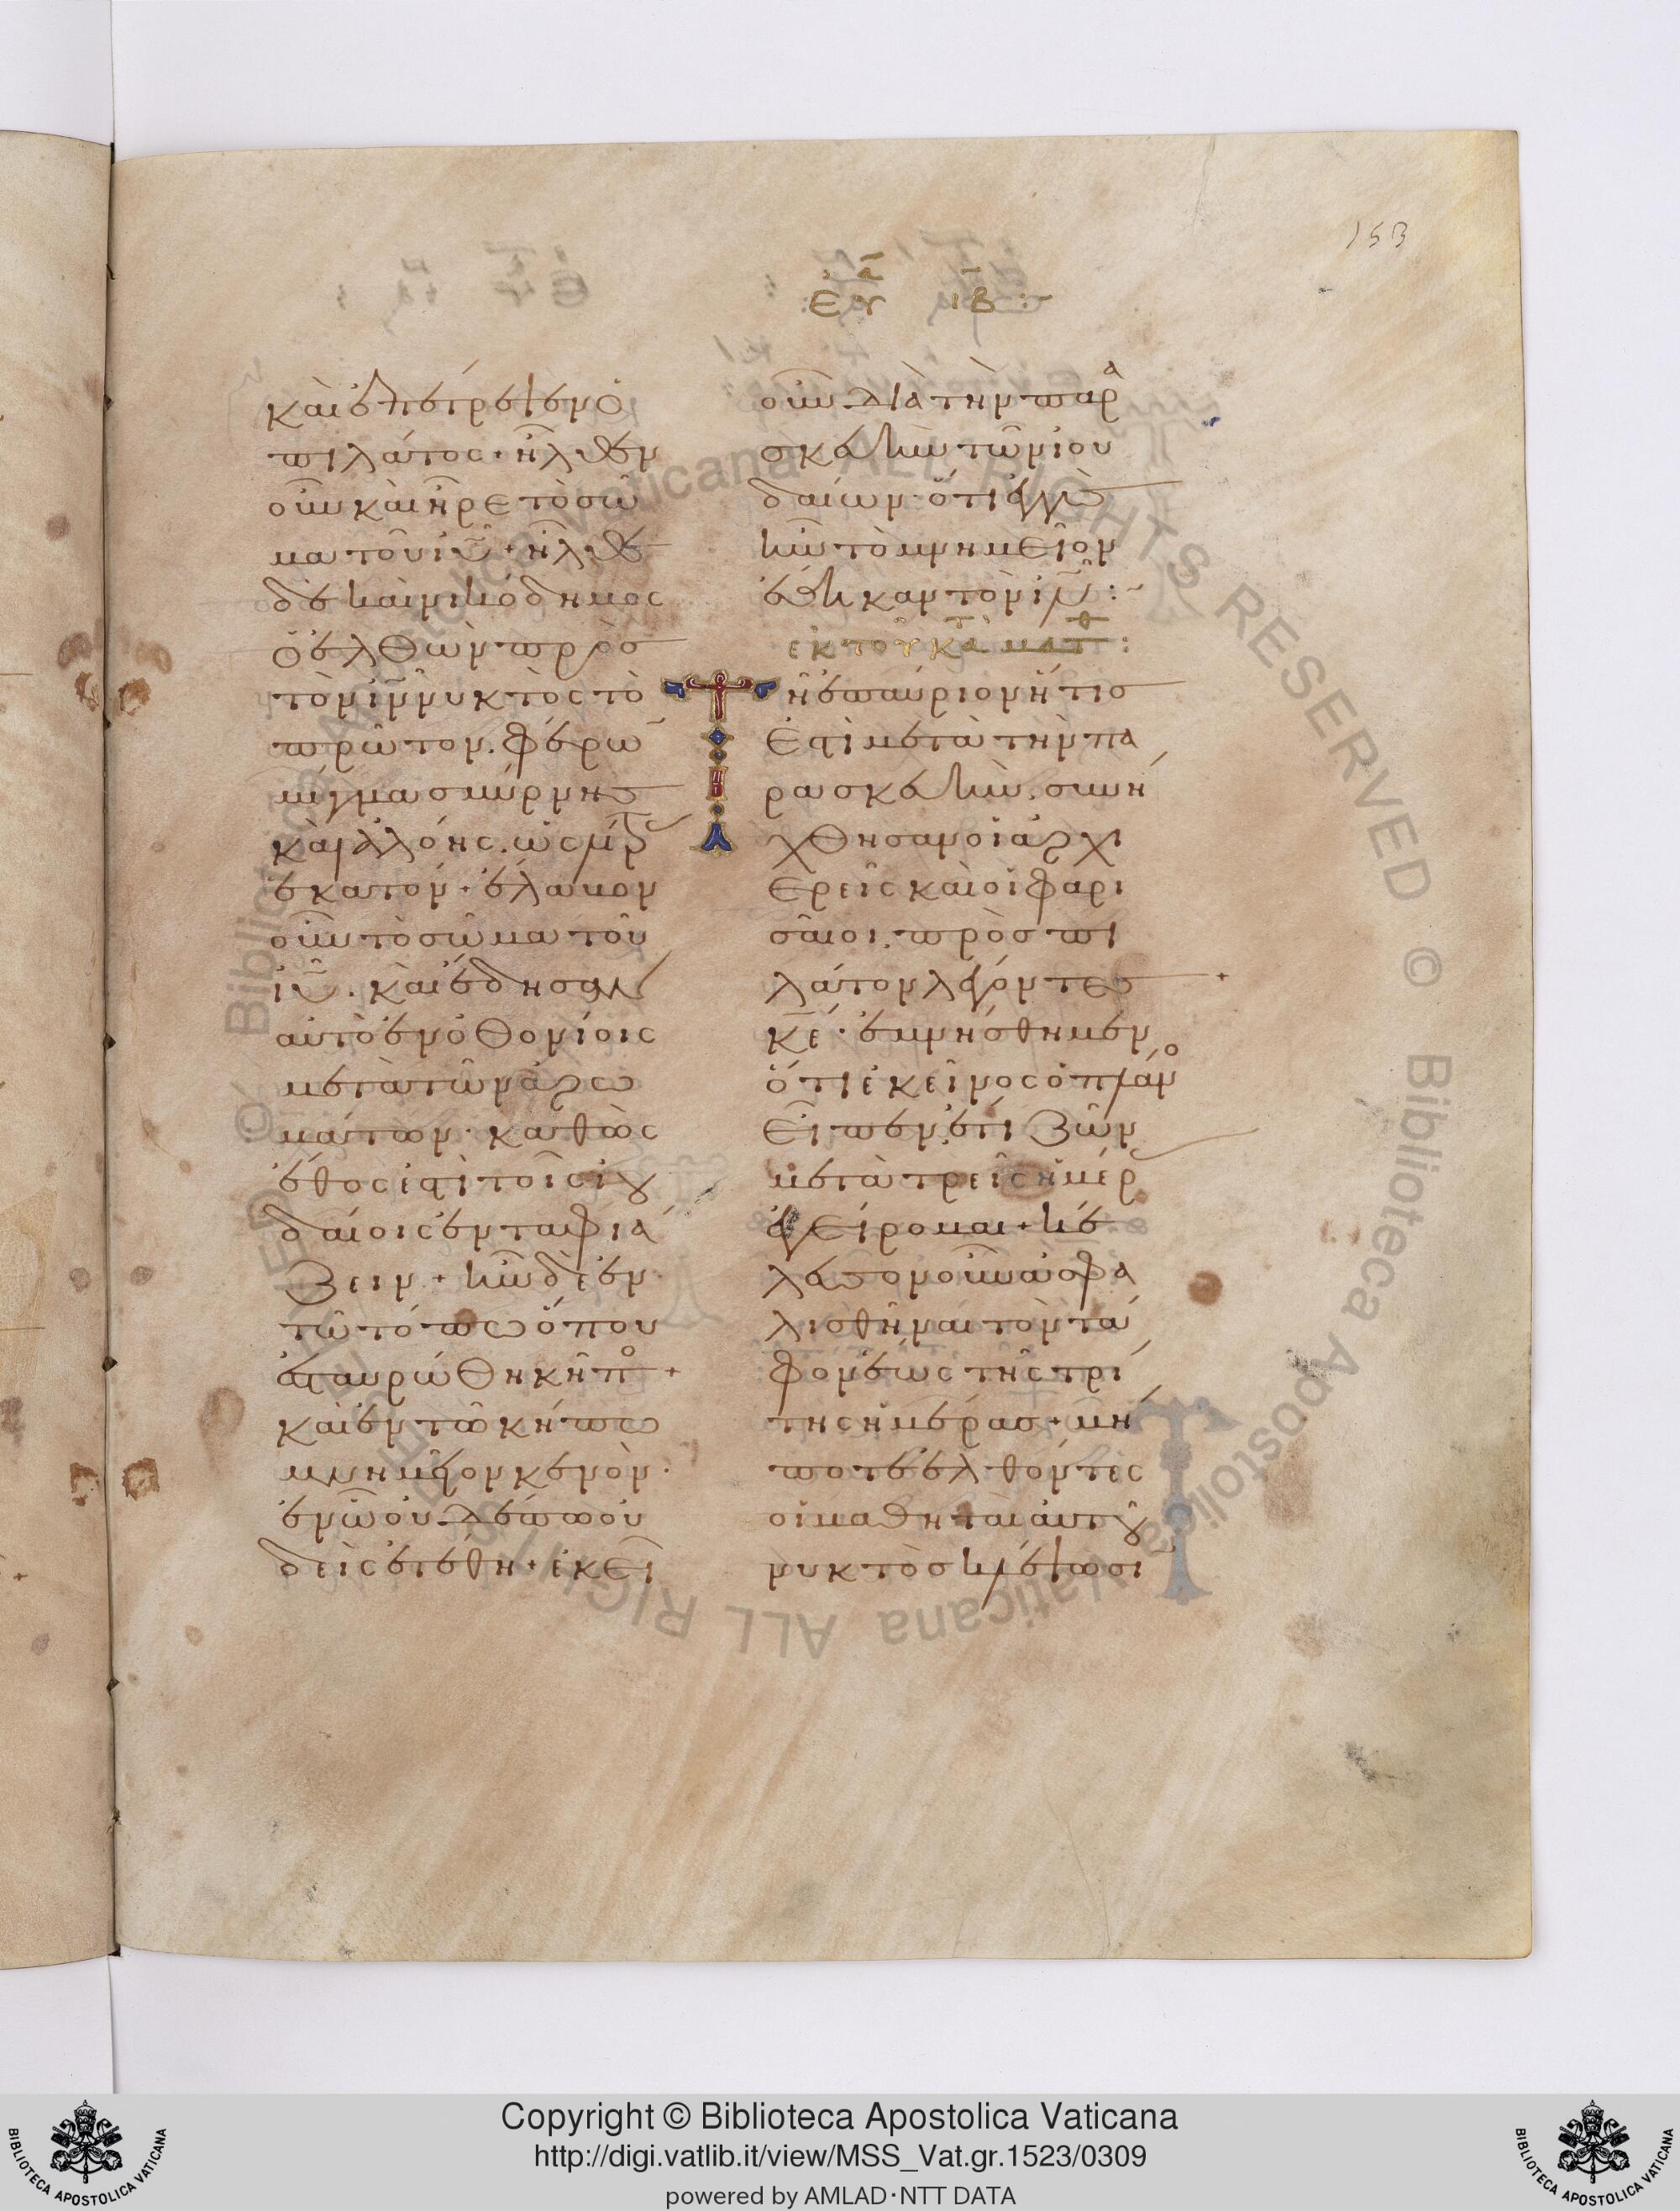 153
ευα ιβ :~
καὶ ἐπέτρεψεν ὁ
πιλάτος + ἦλθεν
οὖν καὶ ἦρε τὸ σῶ
μα τοῦ ιυ + ἦλθε
δὲ καὶ νικόδημος
ὁ ἐλθὼν πρὸσ
τὸν ιν νυκτὸς τὸ
πρῶτον . φέρω
μίγμα σμύρνησ
καὶ ἀλόης . ὡς λίτρ
ἑκατόν + ἔλαβον
οὖν τὸ σῶμα τοῦ
ιυ . καὶ ἔδησαν
αὐτὸ ἐν ὀθονίοις
μετὰ τῶν ἀρω
μάτων · καθὼς
ἔθος ἐστὶ τοῖς ἰου
δαίοις ἐνταφιά
ζειν + ἦν δὲ ἐν
τῶ τόπω ὅπου
ἐσταυρώθη κῆπο +
καὶ ἐν τῶ κήπω
μνημεῖον κενὸν ·
ἐν ὧ οὐδέπω οὐ
δεὶς ἐτέθη + ἐκεῖ
οὖν διὰ τὴν παρα
σκευὴν τῶν ἰου
δαίων · ὅτι ἐγγὺς
ἦν τὸ μνημεῖον
ἔθηκαν τὸν ιν :~
εκ του κατὰ ματθ :
Τῆ ἐπαύριον ἥτισ
ἐστὶ μετὰ τὴν πα
ρασκευὴν . συνή
χθησαν οἱ ἀρχι
ερεῖς καὶ οἱ φαρι
σαῖοι . πρὸς πι
λάτον λέγοντεσ +
κε · ἐμνήσθημεν
ὅτι ἐκεῖνος ὁ πλάνο
εἶπεν ἔτι ζῶν
μετὰ τρεῖς ἡμέρ
ἐγείρομαι + κέ
λευσον οὖν ἀσφα
λισθῆναι τὸν τά
φον ἕως τῆς τρί
της ἡμέρας + μή
ποτε ἐλθόντες
οἱ μαθηταὶ αὐτοῦ
νυκτὸσ κλέψωσι
Copyright © Biblioteca Apostolica Vaticana
http://digi.vatlib.it/view/MSS_Vat.gr.1523/0309
powered by AMLAD·NTT DATA
BIBLIOTECA APOSTOLICA VATICANA
BIBLIOTECA APOSTOLICA VATICANA
© Biblioteca Apostolica Vaticana ALL RIGHTS RESERVED © Biblioteca Apostolica Vaticana ALL RIGHTS RESERVED